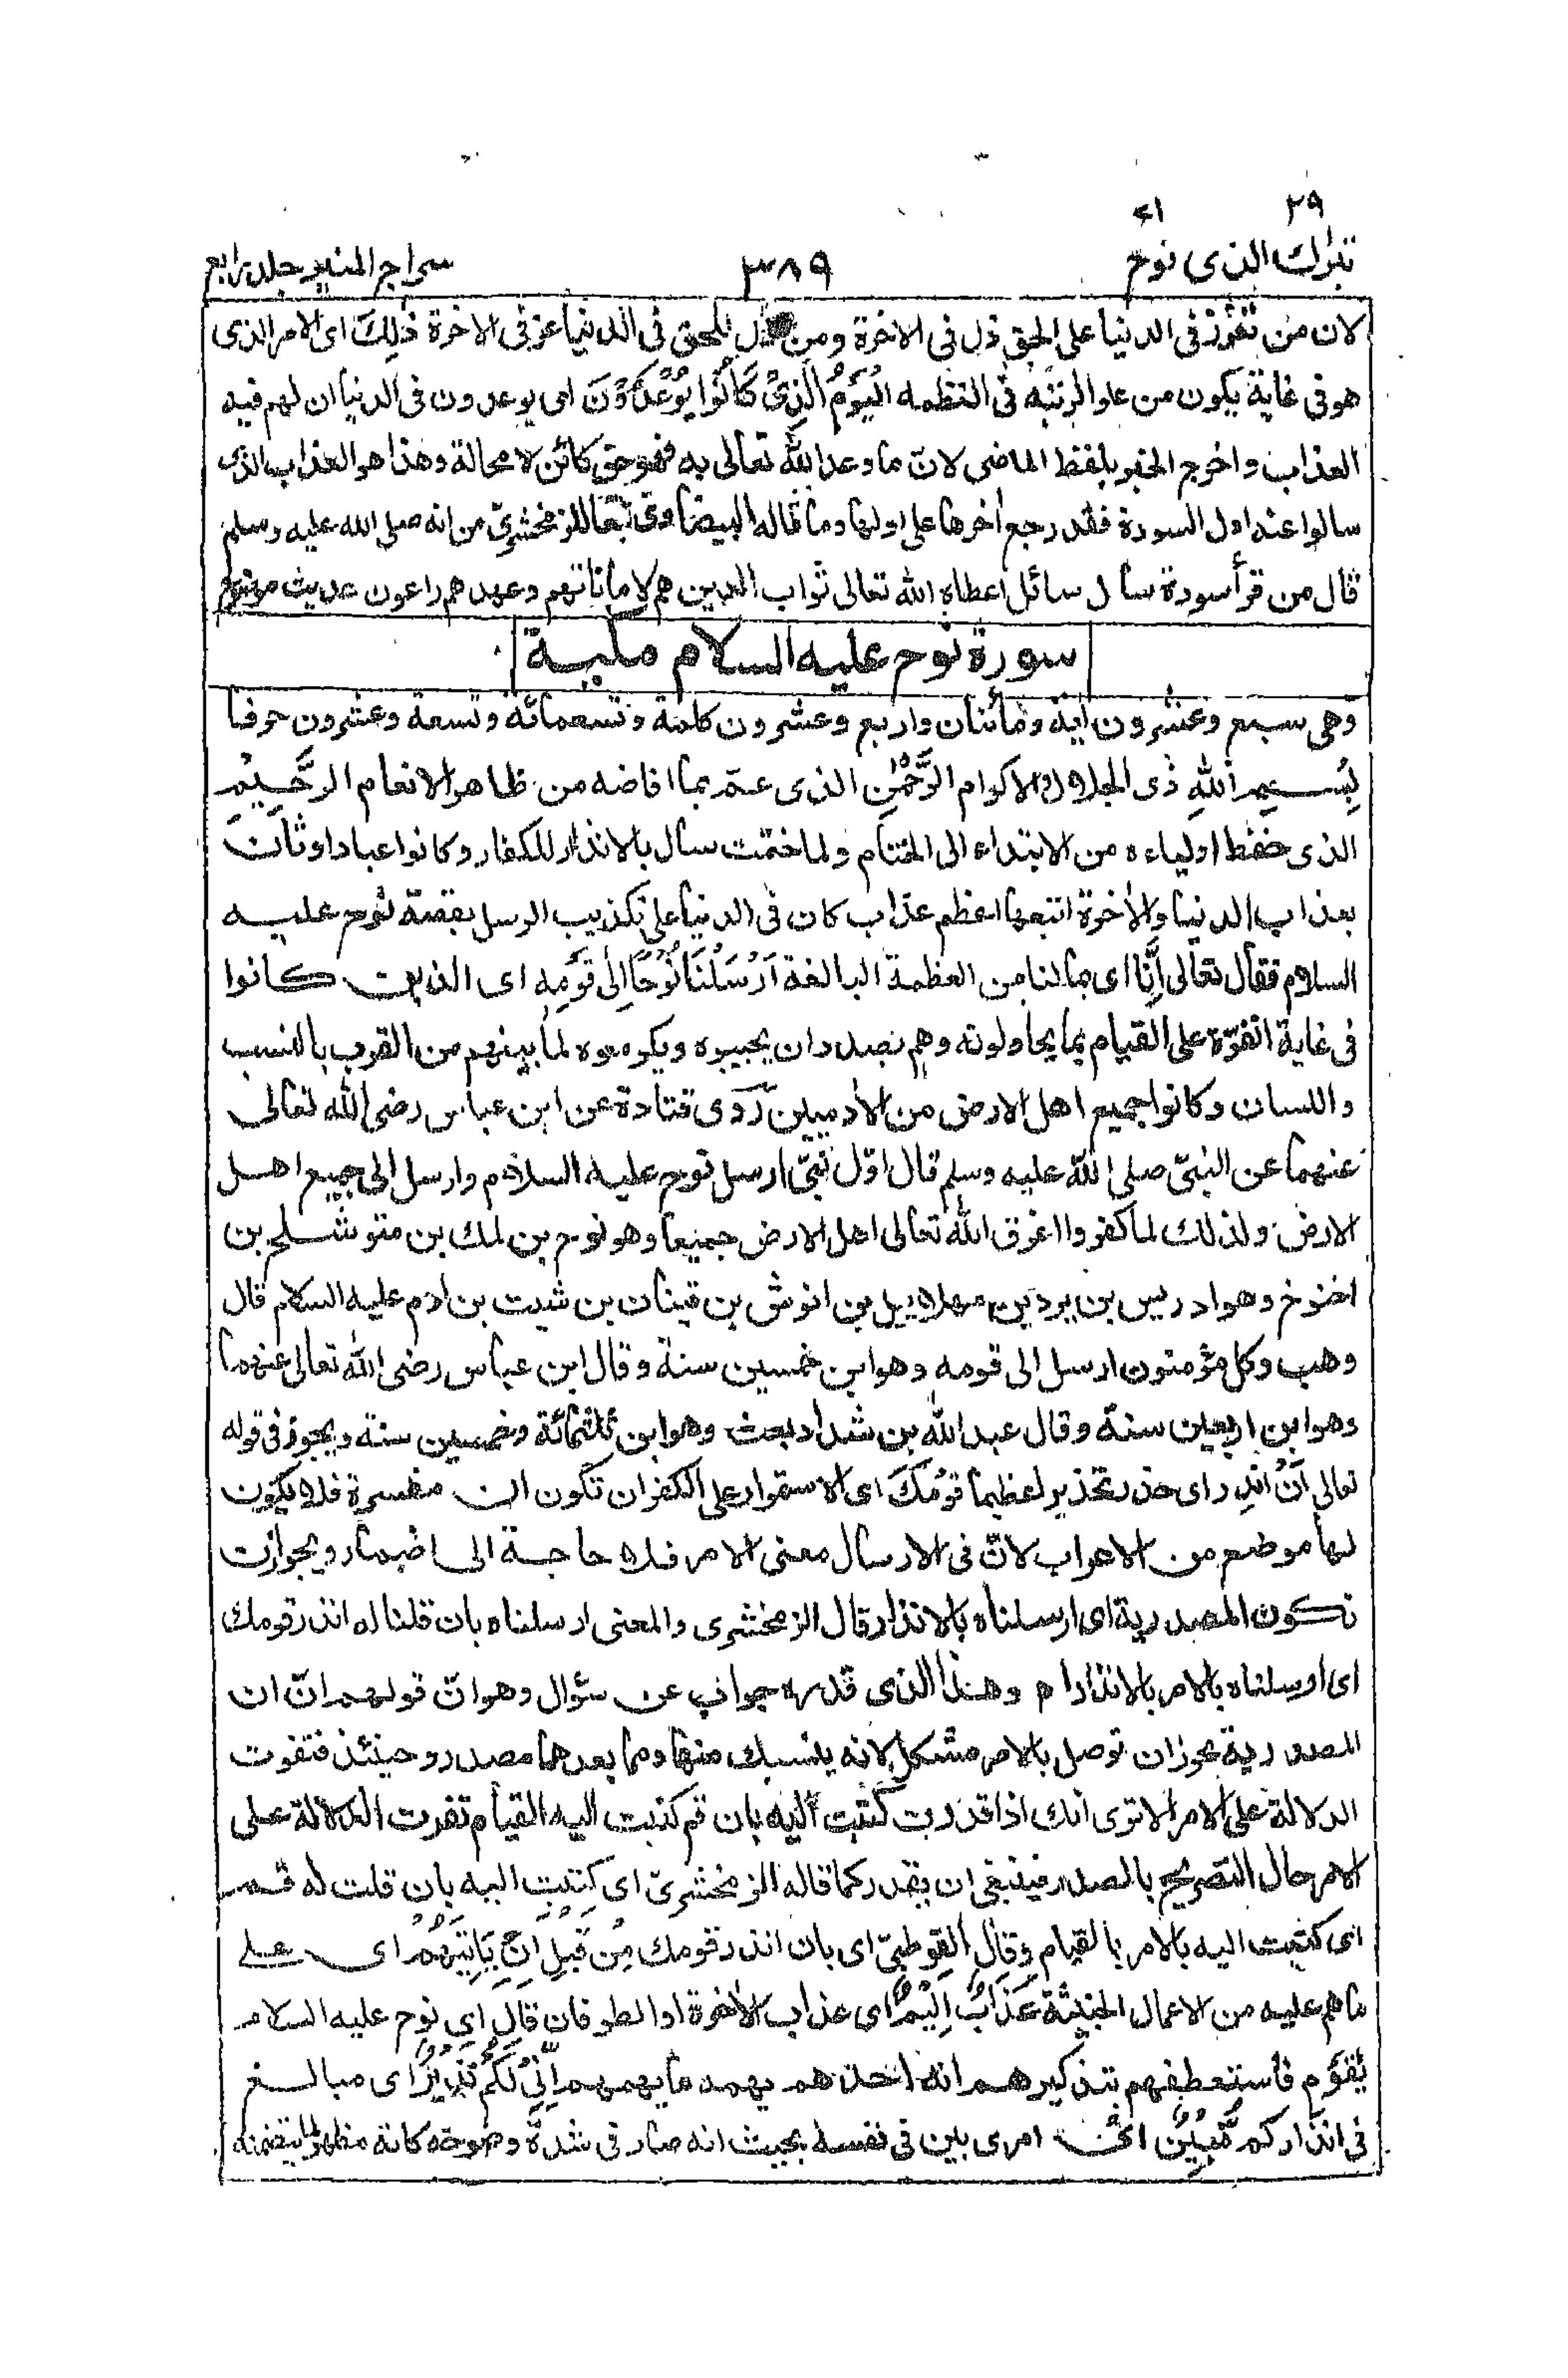 ٢٩
٧١
تبٰرك الذى نوح
٣٨٩
سراج المنير جلد رابع
لان من تعزز فى الدنيا على الحق ذل فى الاخرة ومن ذل للحق فى الدنيا عز فى الاخرة ذٰلِكَ اى الامر الذى
هو فى غاية يكون من علو الرتبه فى العظمه الْيَوْمُ الَّذِىْ كَانُوْا يُوْعَدُوْنَ اى يوعدون فى الدنيا ان لهم فيه
العذاب واخرج الخبر بلفظ الماضى لانّ ما وعد الله تعالى به فهو حق كائن لا محالة وهذا هو العذاب الذى
سالوا عنه اول السورة فقد رجع اٰخرها على اولها وما قاله البيضاوىّ تبعا للزمخشرىّ من انه صلى الله عليه وسلم
قال من قرأ سورة سأل سائل اعطاه الله تعالى ثواب الذين هم لاماناتهم وعهدهم راعون حديث موضوع
سورة نوح عليه السلام مكية
وهى سبع وعشرون اٰية ومائتان واربع وعشرون كلمة وتسعمائة وتسعة وعشرون حرفا
بِسْمِ اللهِ ذى الجلال والاكرام الرَّحْمٰنِ الذى عمّ بما افاضه من ظاهر الانعام الرَّحِيْمِ
الذى حفظ اولياءه من الابتداء الى الختام ولما ختمت سال بالانذار للكفار وكانوا عباد اوثان
بعذاب الدنيا والاٰخرة اتبعها اعظم عذاب كان فى الدنيا على تكذيب الرسل بقصة نوح عليه
السلام فقال تعالى اِنَّا اى بما لنا من العظمة البالغة اَرْسَلْنَا نُوْحًا اِلٰى قَوْمِهٖ اى الذين كانوا
فى غاية القوّة على القيام بما يحاولونه وهم بصدد ان يجيبوه ويكرموه لما بينهم من القرب بالنسب
واللسان وكانوا جميع اهل الارض من الاٰدميين رَوى قتادة عن ابن عباس رضى الله تعالى
عنهما عن النبىّ صلى الله عليه وسلم قال اوّل نبىّ ارسل نوح عليه السلام وارسل الى جميع اهل
الارض ولذلك لما كفروا اغرق الله تعالى اهل الارض جميعا وهو نوح بن لمك بن متوشلح بن
اخنوخ وهو ادريس بن يرد بن مهلاييل بن انوش بن قينان بن شيث بن اٰدم عليه السلام قال
وهب وكل مؤمنون ارسل الى قومه وهو ابن خمسين سنة وقال ابن عباس رضى الله تعالى عنهما
وهو ابن اربعين سنة وقال عبد الله بن شداد بعث وهو ابن ثلثمائة وخمسين سنة ويجوز فى قوله
تعالى اَنْ اَنْذِر اى حذر تحذير لعظيما قَوْمَكَ اى الاستمرار على الكفر ان تكون ان مفسرة فلا يكون
لها موضع من الاعراب لانّ فى الارسال معنى الامر فلا حاجة الى اضمار ويجوز ان
تكون المصدرية اى ارسلناه بالانذار قال الزمخشرى والمعنى ارسلناه بان قلنا له انذر قومك
اى ارسلناه بالامر بالانذار اه وهذا الذى قدره جواب عن سؤال وهو انّ قولهم انّ ان
المصدرية يجوز ان توصل بالامر مشكل لانه ينسبك منها وما بعدها مصدر وحينئذ فتفوت
الدلالة على الامر الا ترى انك اذا قدرت كتبت اليه بان قم كتبت اليه القيام تفوت الدلالة على
الامر حال التصريح بالمصدر فينبغى ان يقدر كما قاله الزمخشرىّ اى كتبت اليه بان قلت له قم
اى كتبت اليه بالامر بالقيام وقال القرطبىّ اى بان انذر قومك مِنْ قَبْلِ اَنْ يَاْتِيَهُمْ اى على
ما هم عليه من الاعمال الخبيثة عَذَابٌ اَلِيْمٌ اى عذاب الاٰخرة او الطوفان قَالَ اى نوح عليه السلام
يٰقَوْمِ فاستعطفهم بتذكيرهم انه احدهم يهمه ما يهمهم اِنِّىْ لَكُمْ نَذِيْرٌ اى مبالغ
فى انذاركم مُّبِيْنٌ امرى بين فى نفسه بحيث انه صار فى شدة وضوحه كانه مظهر لما يتضمنه